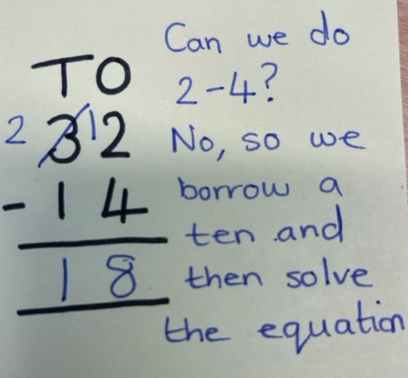 TO
2 3 12
- 1 4
1 8
Can we do
2-4?
No, so we
borrow a
ten and
then solve
the equation